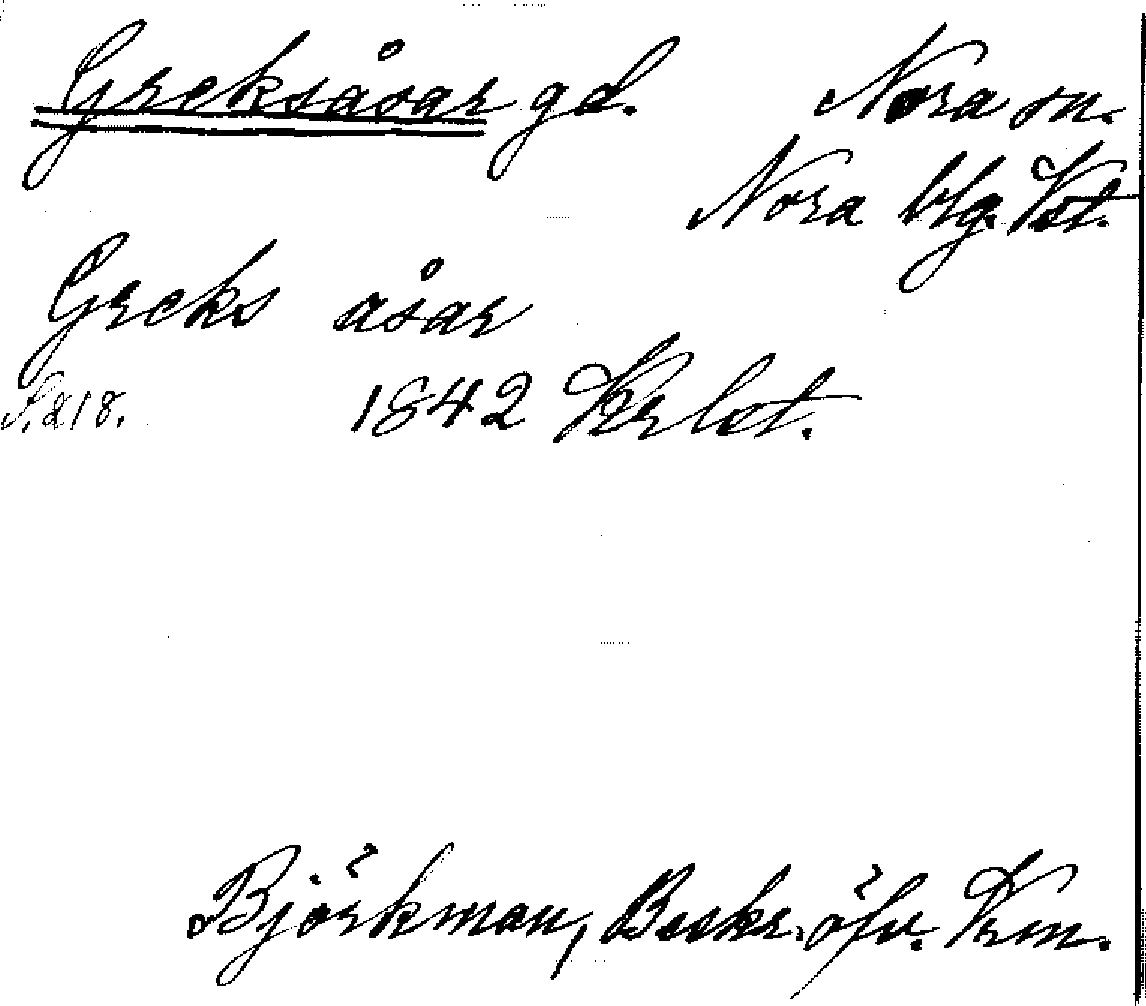 Greksåsar gd. Nora sn.
Nora blg. Vst.
Greks åsar
S. 218. 1842
Björkman, Beskr. öfv. Vm.